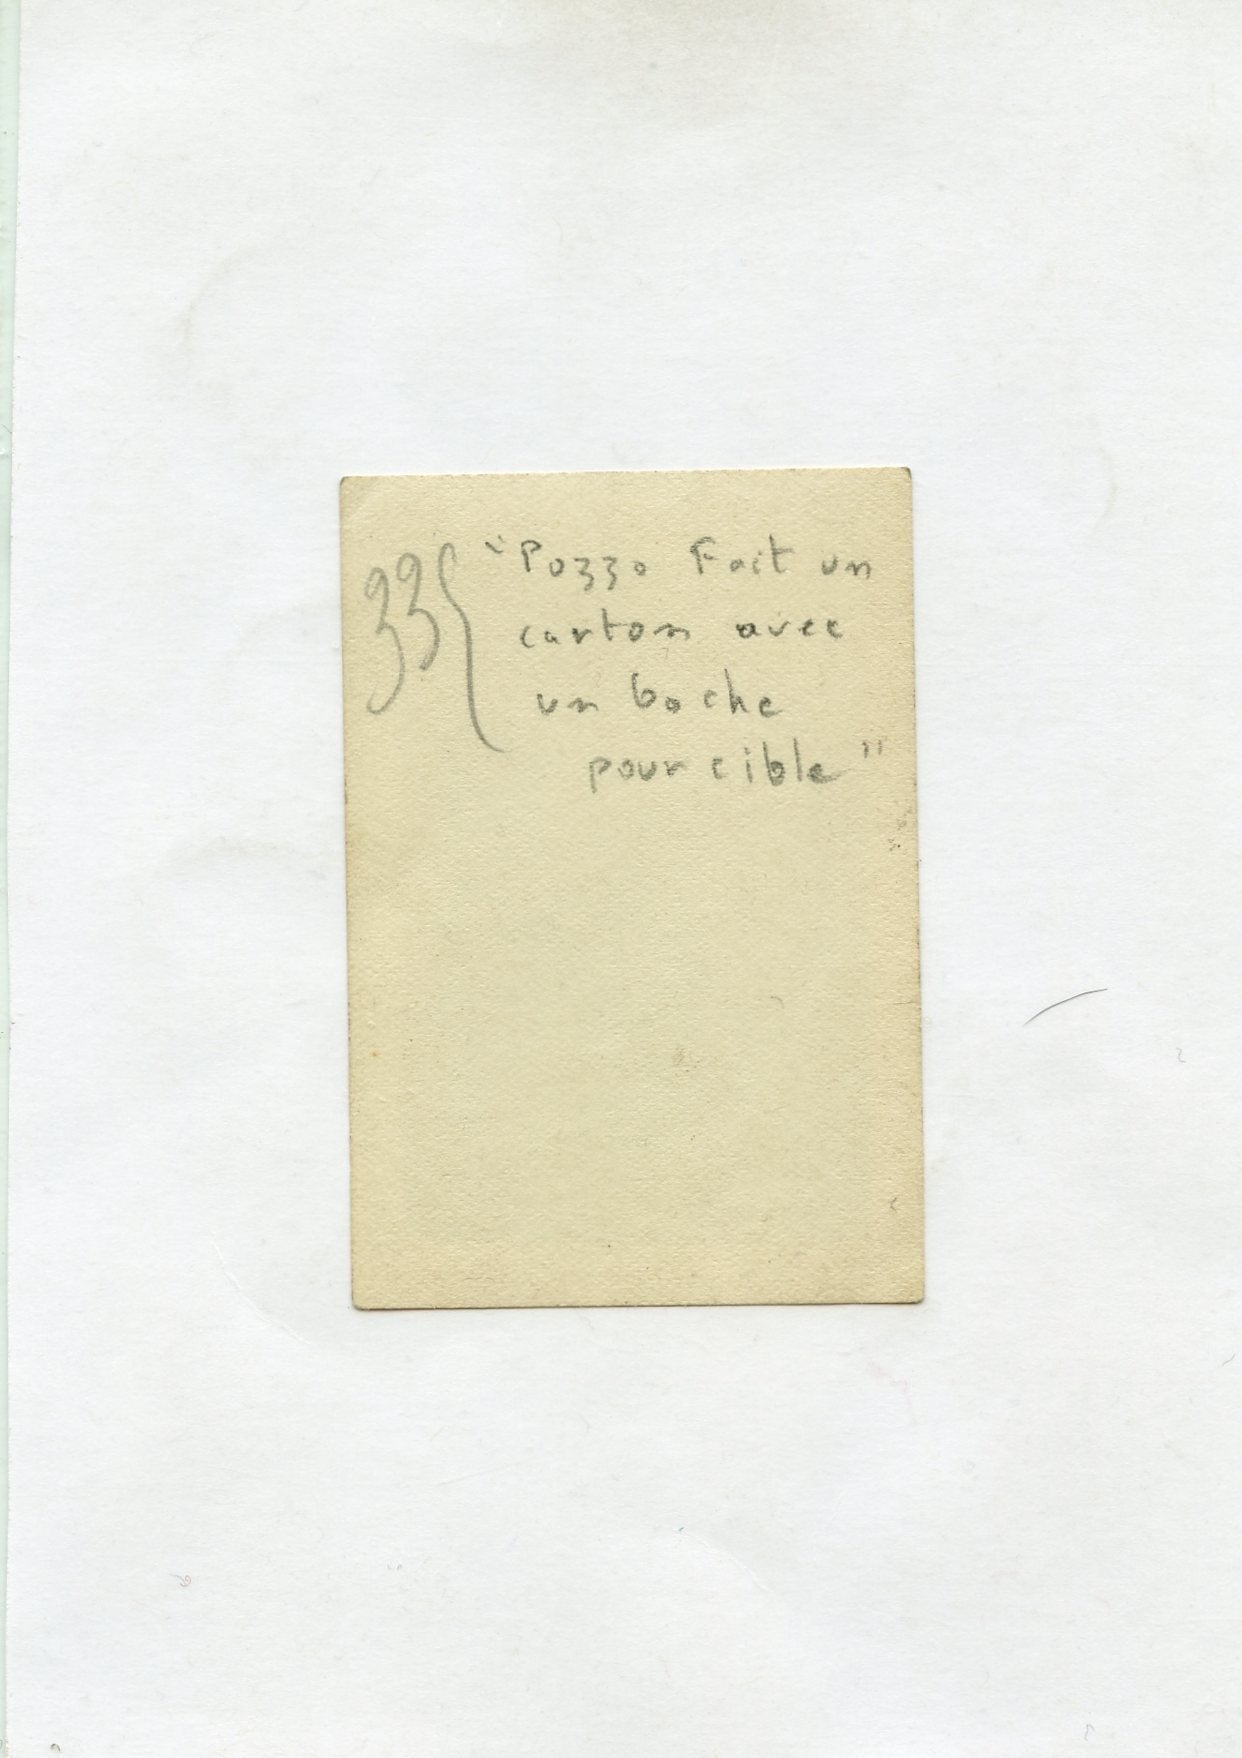 33 { "Pozzo Fait un
carton avec
un boche
pour cible"